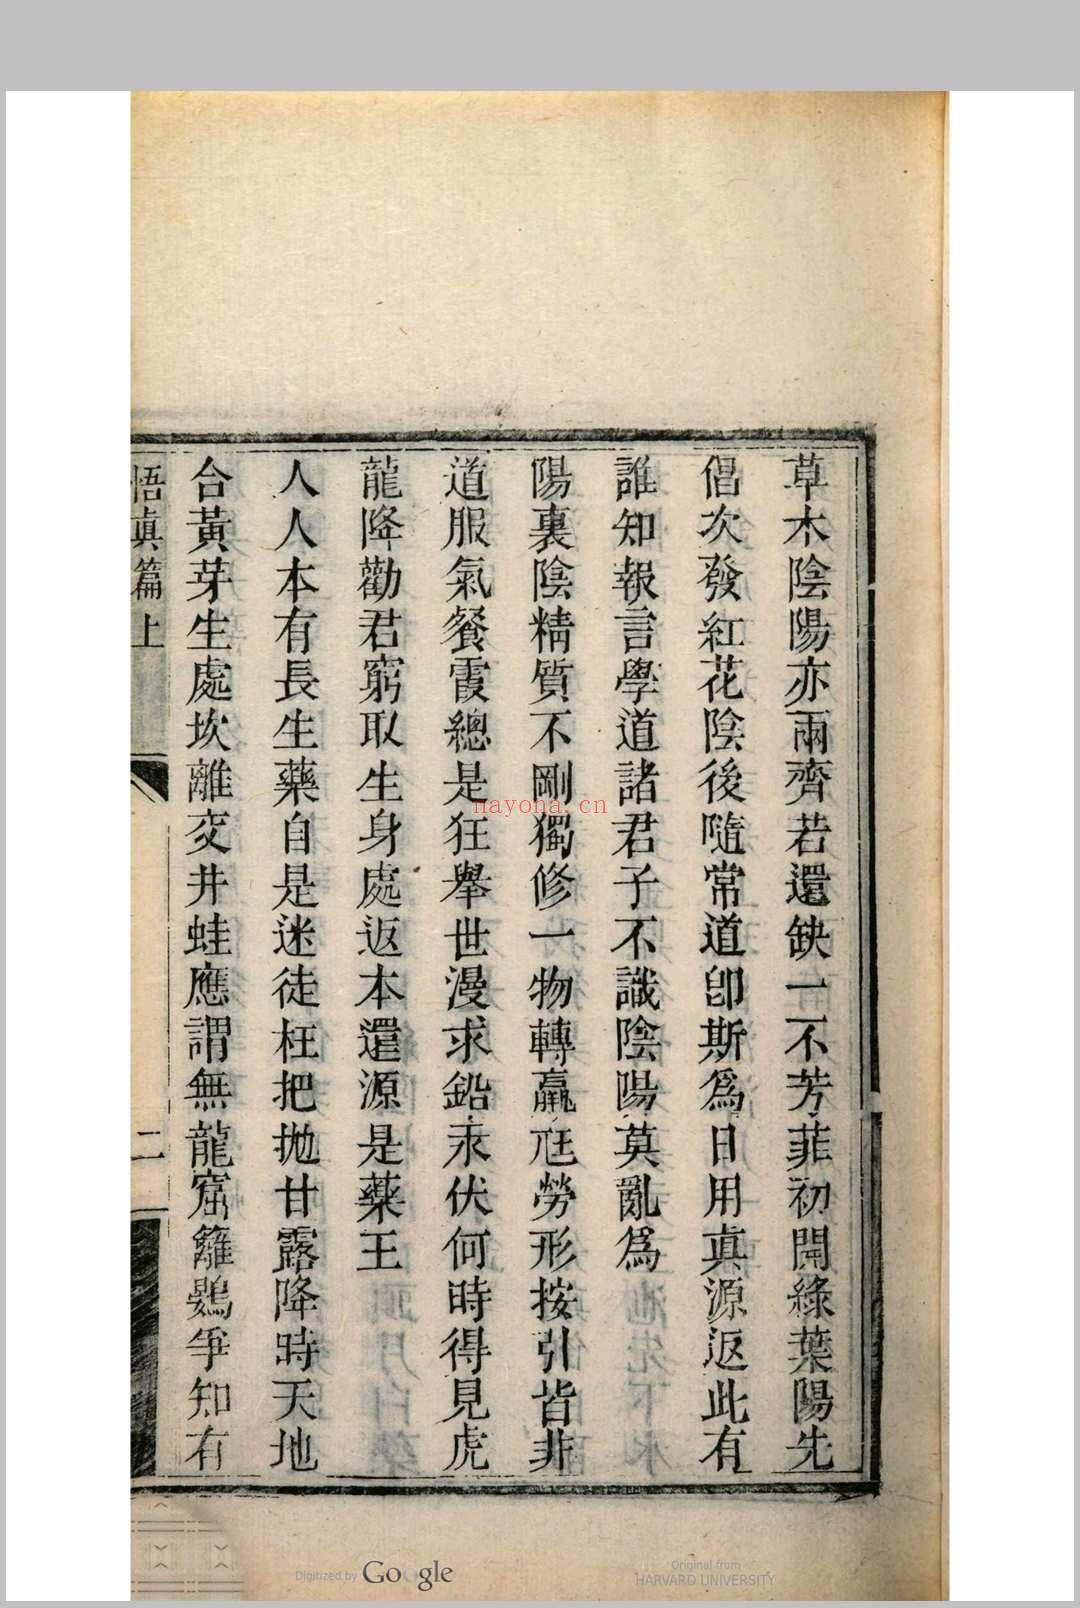 草木陰陽亦兩齊若還缺一不芳菲初開綠葉陽先
倡次發紅花陰後隨常道卽斯爲日用眞源返此有
誰知報言學道諸君子不識陰陽莫亂爲
陽裏陰精質不剛獨修一物轉羸尫勞形按引皆非
道服氣餐霞總是狂舉世漫求鉛汞伏何時得見虎
龍降勸君窮取生身處返本還源是藥王
人人本有長生藥自是迷徒枉把拋甘露降時天地
合黃芽生處坎離交井蛙應謂無龍窟籬鷃爭知有
悟眞篇上
二
nayona.cn
Digitized by Google
Original from
HARVARD UNIVERSITY